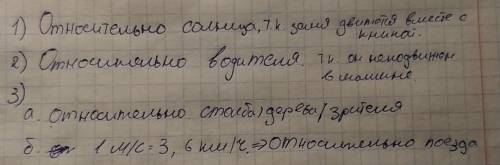 1) Относительно солнца, т.к. земля двигается вместе с
книгой.
2) Относительно водителя. тк он неподвижен
в машине
3)
а. относительно столба/дерева/зрителя
б. 1 м/с = 3, 6 км/ч. => относительно поезда